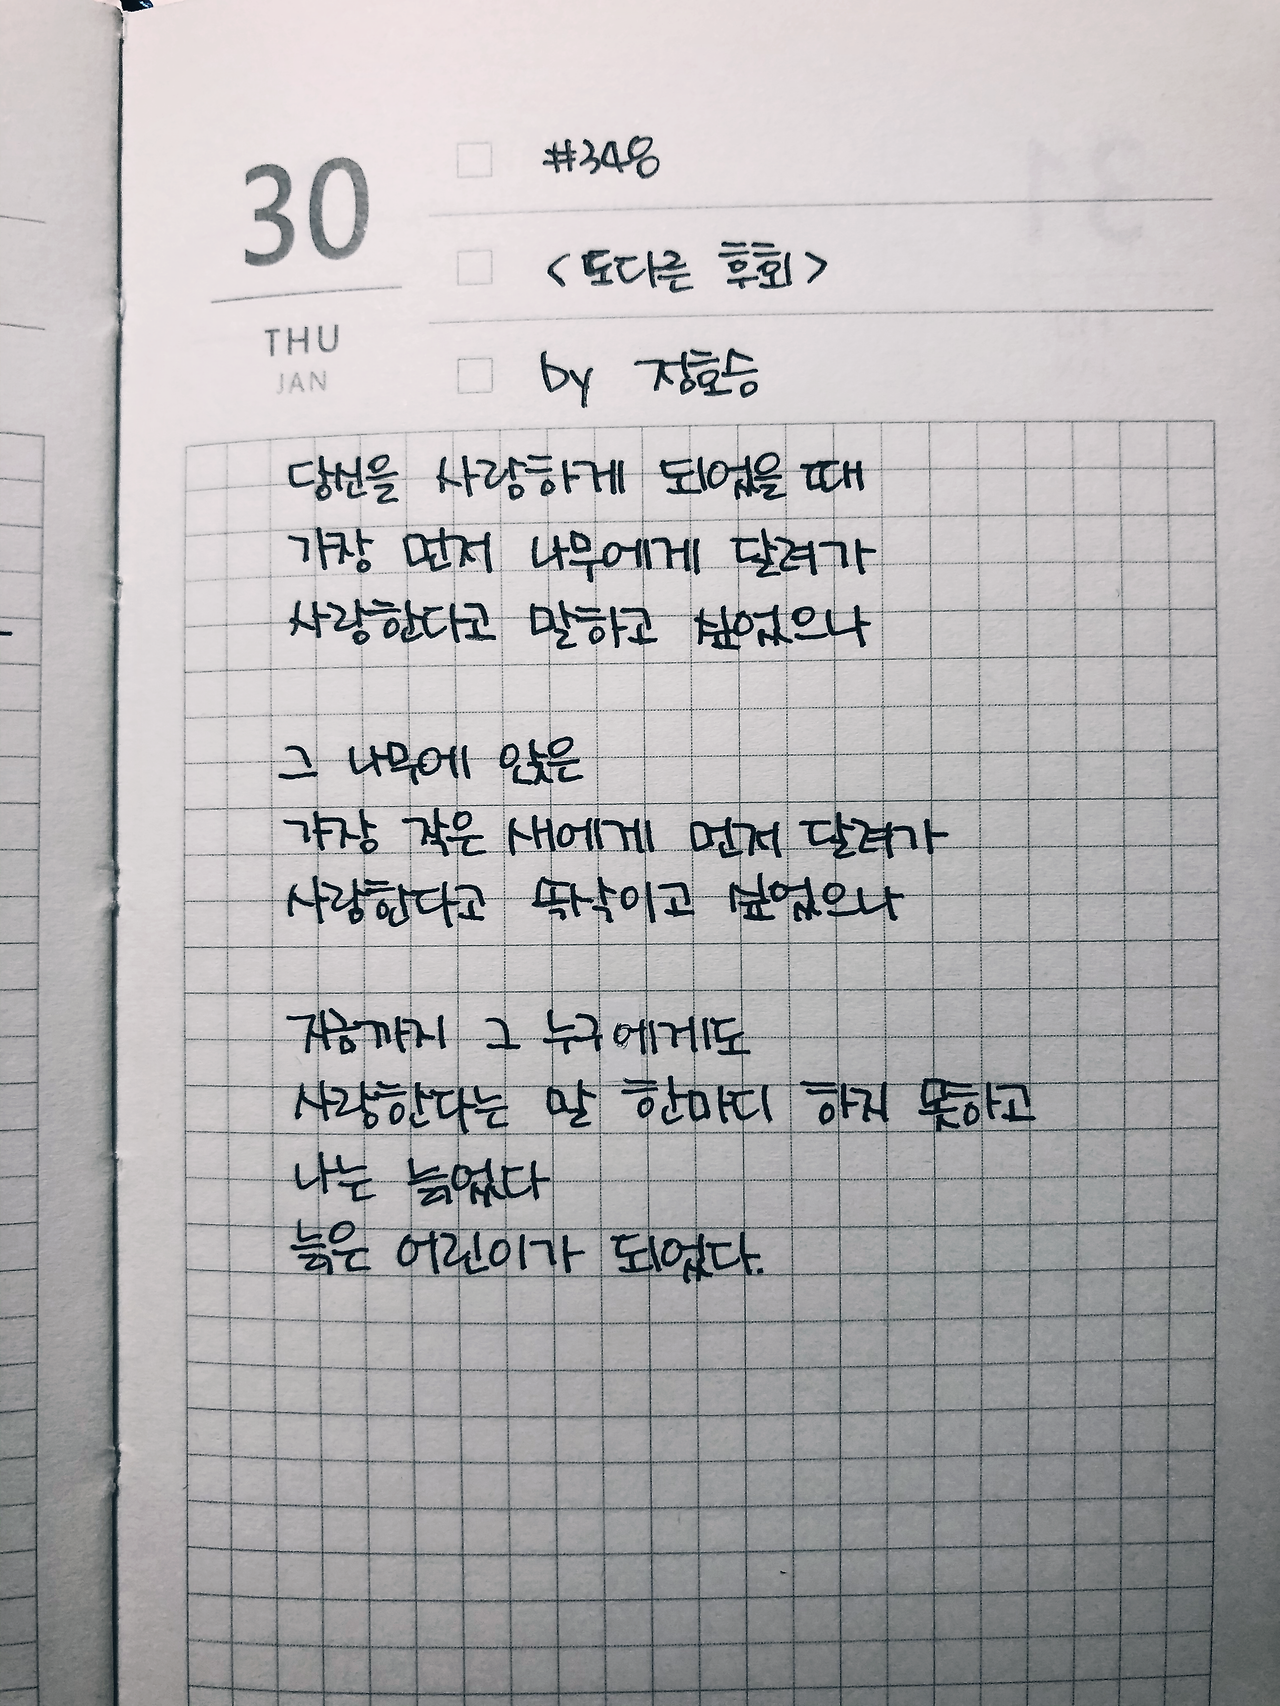 30
THU
JAN
#348
<또다른 후회>
by 정호승
당신을 사랑하게 되었을 때
가장 먼저 나무에게 달려가
사랑한다고 말하고 싶었으나
그 나무에 앉은
가장 작은 새에게 먼저 달려가
사랑한다고 속삭이고 싶었으나
지금까지 그 누구에게도
사랑한다는 말 한마디 하지 못하고
나는 늙었다
늙은 어린이가 되었다.